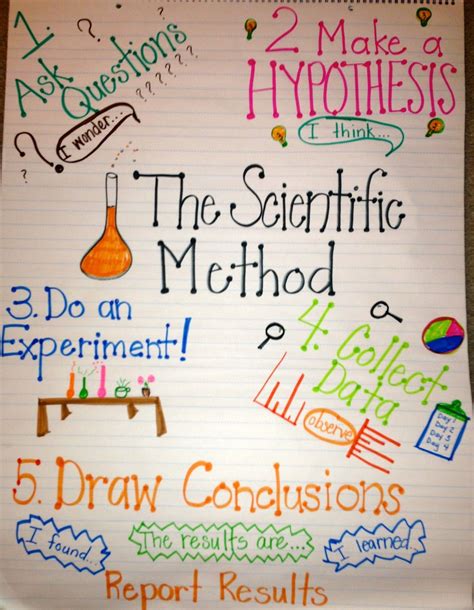 1.
Ask
Questions
? ? ? ? ? ? ? ? ?
I wonder...
2 Make a
HYPOTHESIS
I think...
The Scientific
Method
3. Do an
Experiment!
4. Collect
Data
observe
Day 1
Day 2
Day 3
Day 4
5. Draw Conclusions
I found...
The results are...
I learned...
Report Results